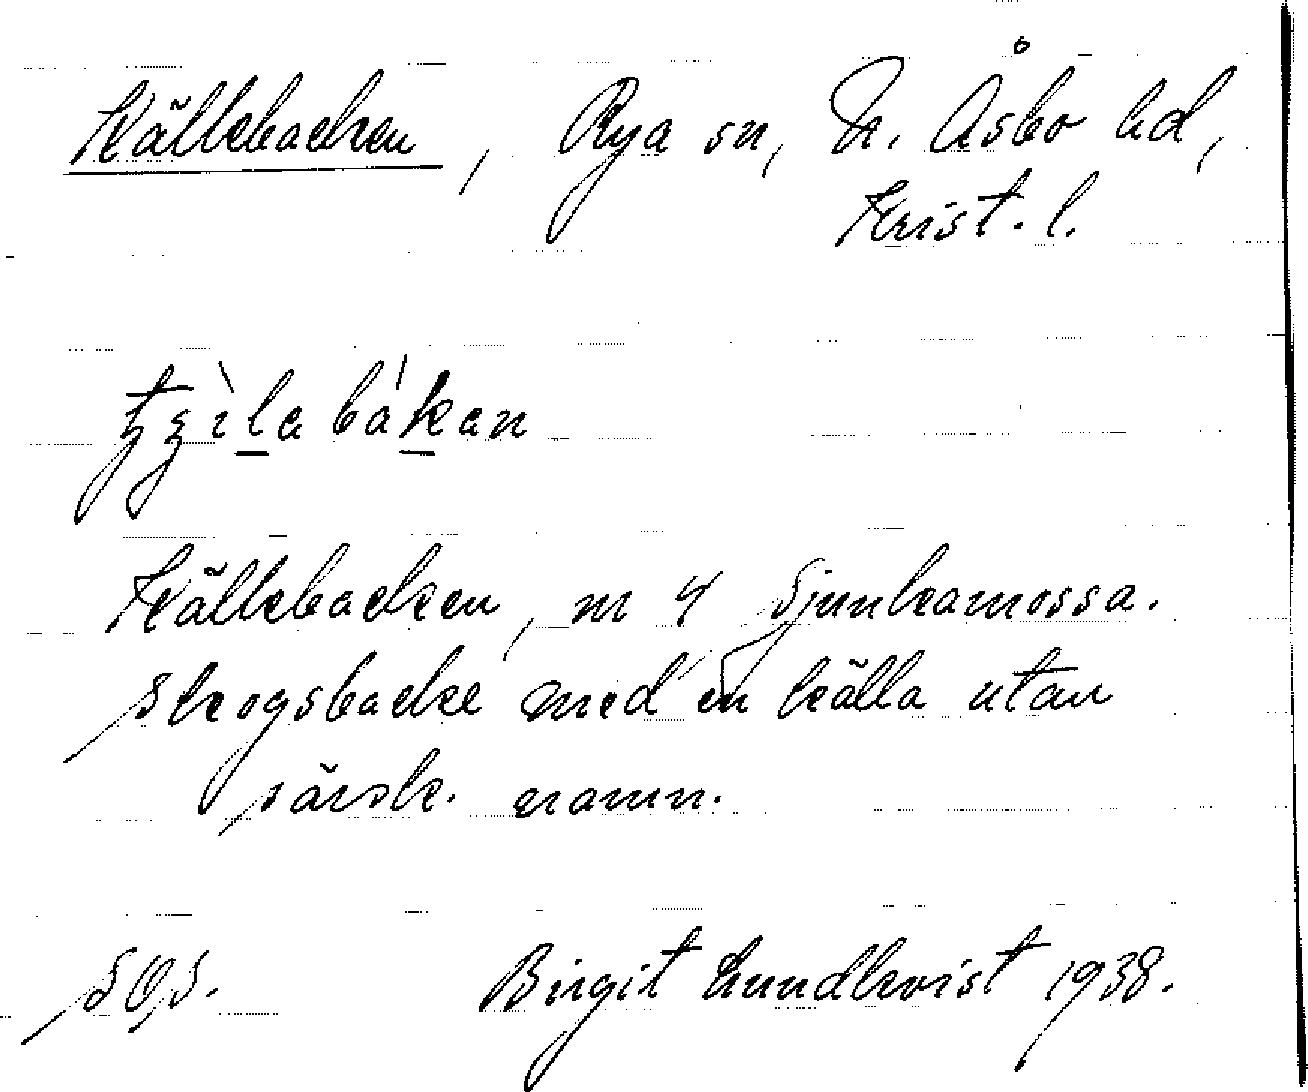 Källebacken, Rya sn, N. Åsbo hd,
Krist. l.
Källebacken, m 4 Sjunkamossa.
Skogsbacke med en källa utan
särsk. namn.
Birgit Lundkvist 1938.